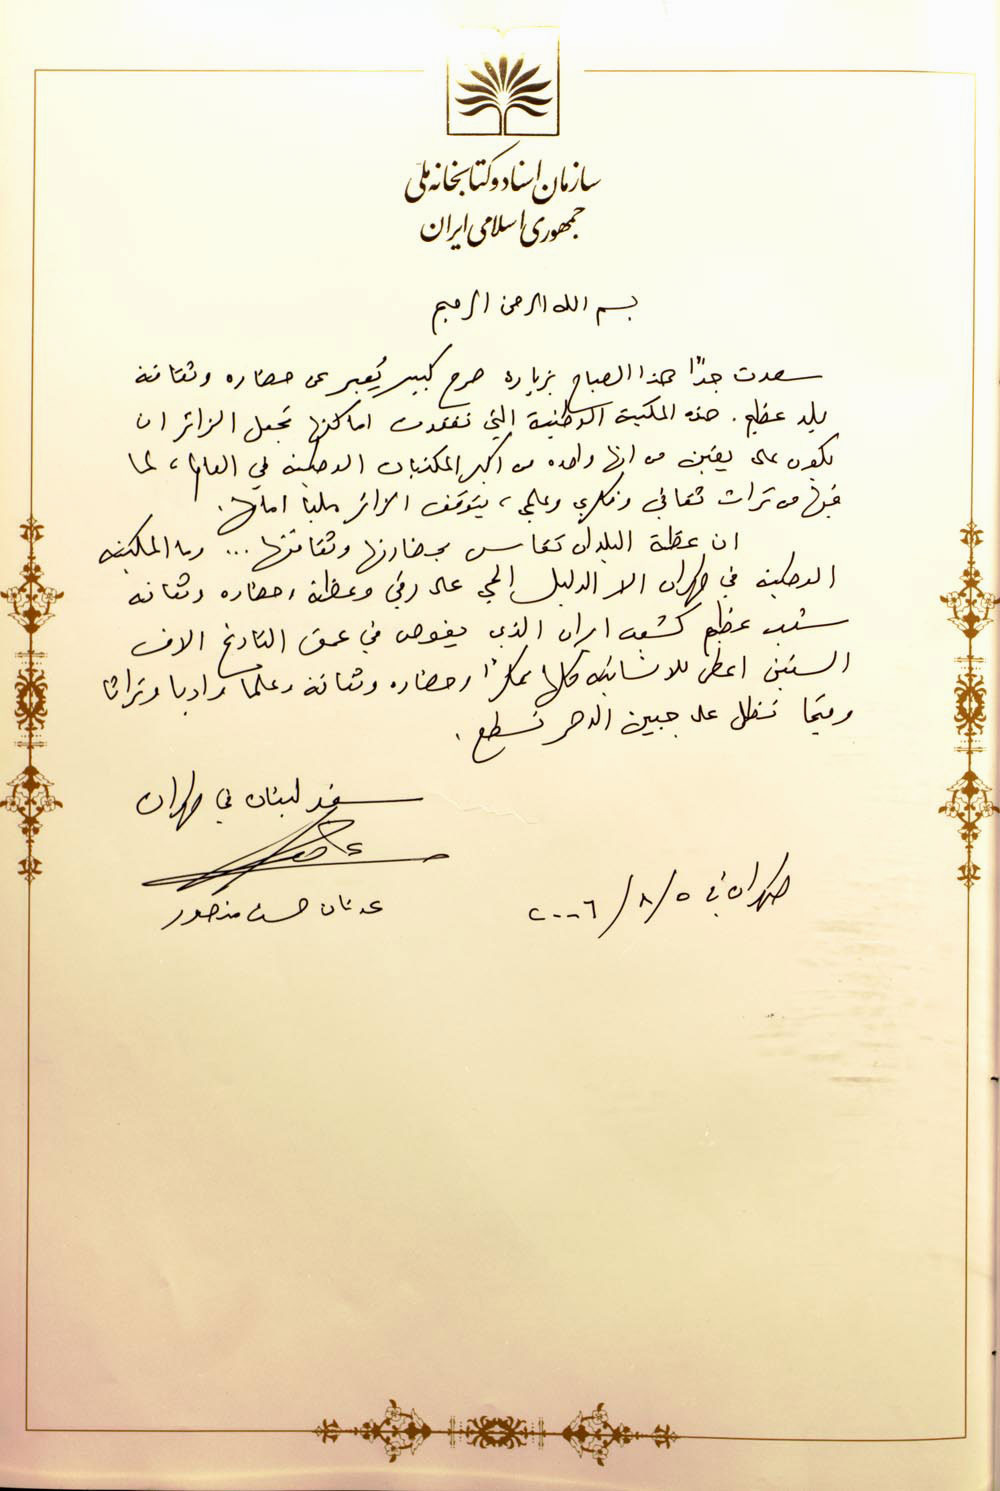 سازمان اسناد و کتابخانه ملی
جمهوری اسلامی ایران
بسم الله الرحمن الرحيم
سعدت جدًا هذا الصباح بزيارة صرح كبير يُعبر عن حضاره وثقافة
بلد عظيم. هذه المكتبة الوطنية التي تفقدت اماكنها تجعل الزائر ان
يكون على يقين من انها واحده من اكبر المكتبات الوطنية في العالم، لما
فيها من تراث ثقافي وفكري وعلمي، يتوقف الزائر مليا امامها.
ان عظمة البلدان تقاس بحضارتها وثقافتها... وما المكتبه
الوطنيه في طهران الا الدليل الحي على رقي وعظمة وحضاره وثقافه
شعب عظيم كشعب ايران الذي يغوص في عمق التاريخ الاف
السنين اعطى للانسانية كلها فكرًا وحضاره وثقافة وعلما وادبا وتراثا
وقيما تظل على جبين الدهر تسطع.
سفير لبنان في طهران
عدنان حسن منصور
طهران في ٥/٨/٢٠٠٦